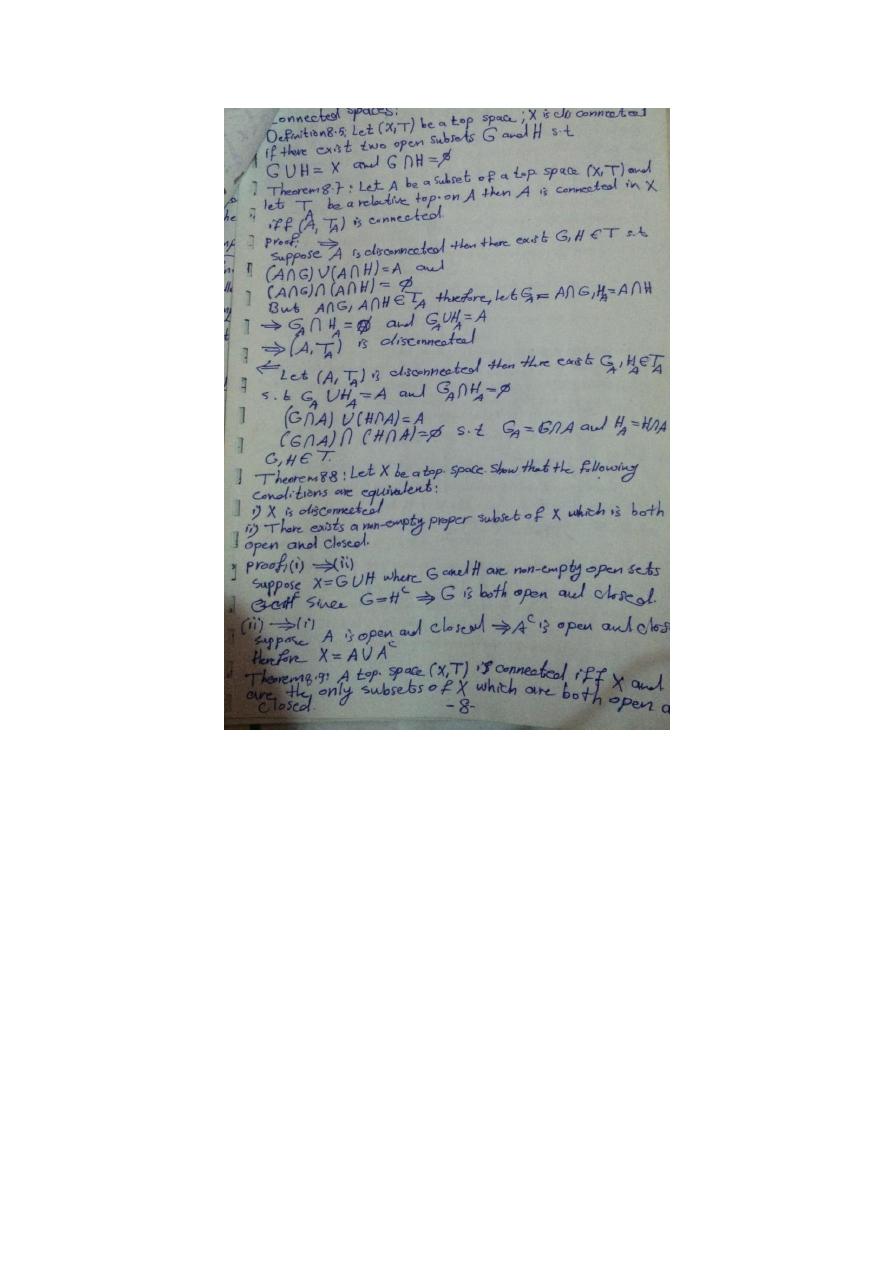 Connected spaces:
Definition 8.5: Let (X,T) be a top space; X is disconnected
if there exist two open subsets G and H s.t
G∪H = X and G∩H = ∅
Theorem 8.7: Let A be a subset of a top. space (X,T) and
let T_A be a relative top. on A then A is connected in X
iff (A, T_A) is connected.
proof: ⇒
suppose A is disconnected then there exist G, H ∈ T s.t
(A∩G)∪(A∩H)=A and
(A∩G)∩(A∩H) = ∅
But A∩G, A∩H ∈ T_A therefore, let G_A = A∩G, H_A = A∩H
⇒ G_A ∩ H_A = ∅ and G_A∪H_A = A
⇒ (A, T_A) is disconnected
⇐ Let (A, T_A) is disconnected then thre exist G_A, H_A ∈ T_A
s.t G_A ∪ H_A = A and G_A ∩ H_A = ∅
(G∩A) ∪ (H∩A) = A
(G∩A) ∩ (H∩A) = ∅ s.t G_A = G∩A and H_A = H∩A
G, H ∈ T.
Theorem 8.8: Let X be a top. space. Show that the following
conditions are equivalent:
i) X is disconnected
ii) There exists a non-empty proper subset of X which is both
open and closed.
proof: (i) ⇒ (ii)
suppose X = G∪H where G and H are non-empty open sets
Since G = H^c ⇒ G is both open and closed.
(ii) ⇒ (i)
suppose A is open and closed ⇒ A^c is open and clos
therefore X = A∪A^c
Theorem 8.9: A top. space (X,T) is connected iff X and
are the only subsets of X which are both open a
closed.
-8-